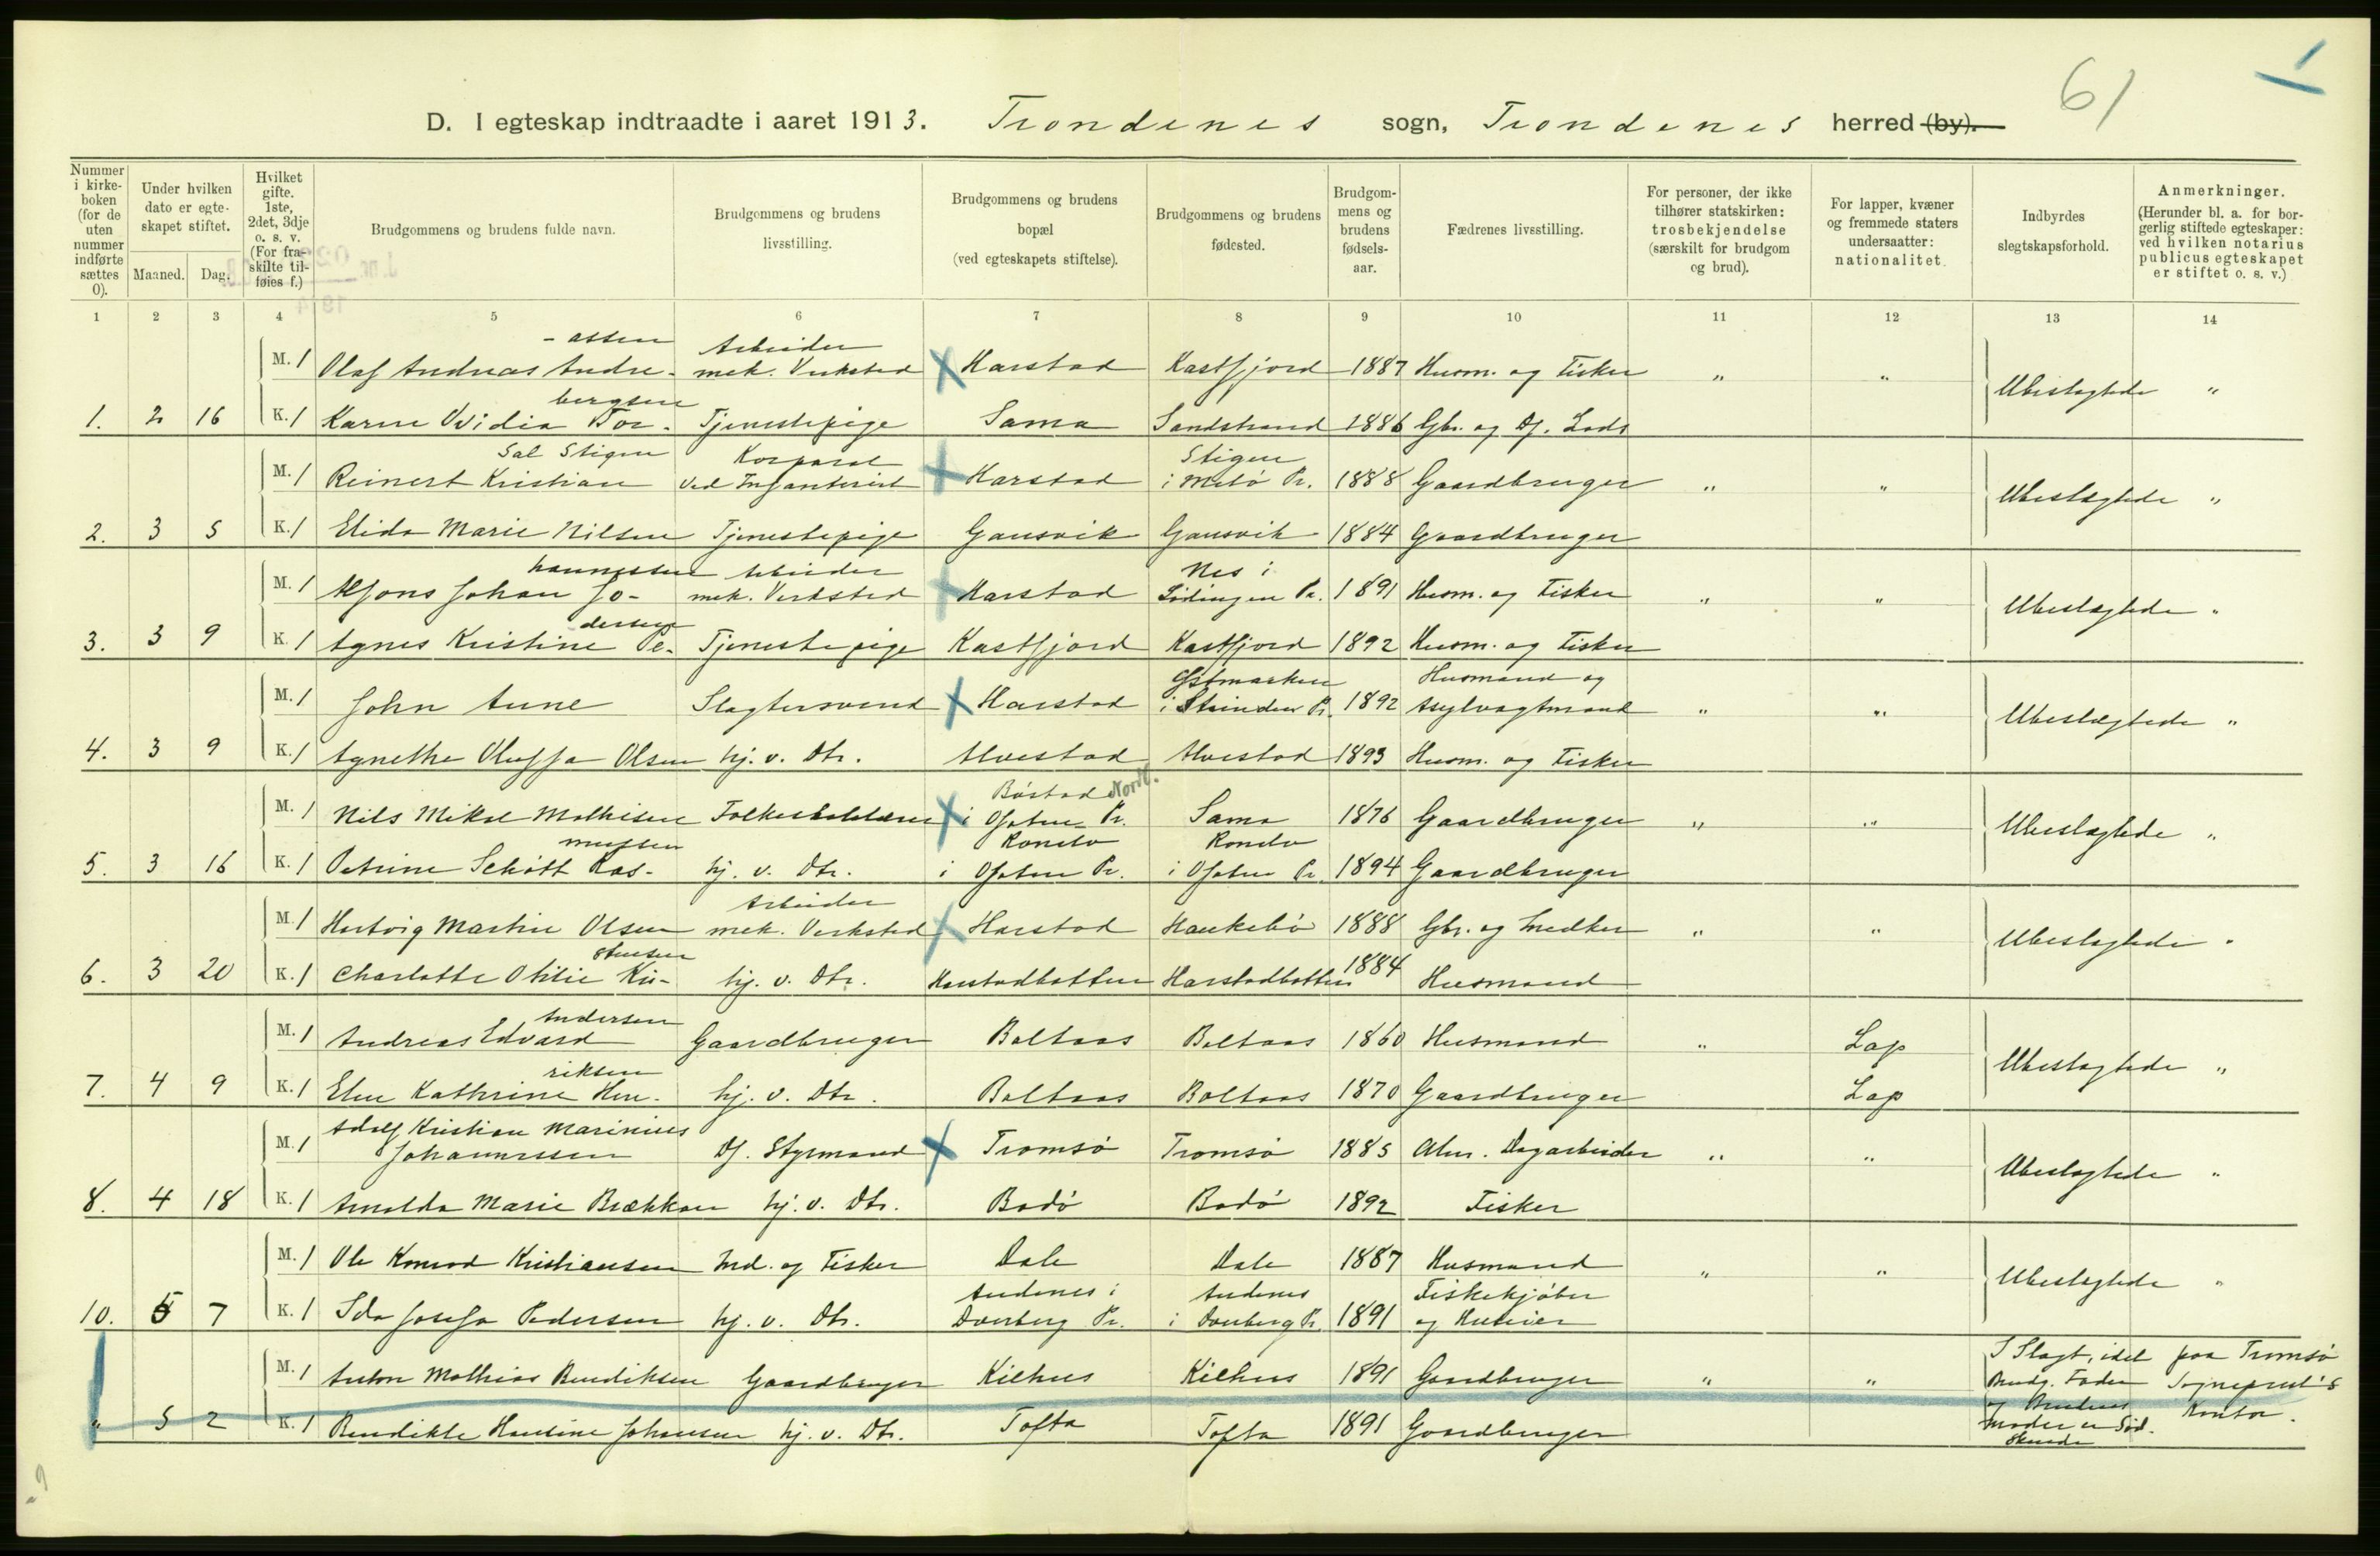 61
D. I egteskap indtraadte i aaret 1913. Trondenes sogn, Trondenes herred (by).
Nummer i kirke-boken (for de uten nummer indførte sættes 0).
Under hvilken dato er egte-skapet stiftet.
Maaned. Dag.
Hvilket gifte. 1ste, 2det, 3dje o. s. v. (For fra-skilte til-føies f.)
Brudgommens og brudens fulde navn.
Brudgommens og brudens livsstilling.
Brudgommens og brudens bopæl (ved egteskapets stiftelse).
Brudgommens og brudens fødested.
Brudgom-mens og brudens fødsels-aar.
Fædrenes livsstilling.
For personer, der ikke tilhører statskirken: trosbekjendelse (særskilt for brudgom og brud).
For lapper, kvæner og fremmede staters undersaatter: nationalitet.
Indbyrdes slegtskapsforhold.
Anmerkninger. (Herunder bl. a. for bor-gerlig stiftede egteskaper: ved hvilken notarius publicus egteskapet er stiftet o. s. v.)
1 2 3 4 5 6 7 8 9 10 11 12 13 14
-assen Arbeider
M. 1 Olaf Andreas Andre- mek. Verksted Harstad Kastfjord 1887 Husm. og Fisker " " Ubeslegtede "
bergsen
1. 2 16 K. 1 Karen Ovidia Tor- Tjenestepige Sama Sandstrand 1886 Gbr. og Df. Lods
Sal Stigen Korporal Stigen
M. 1 Reinert Kristian ved Infanteriet Harstad i Melø Pr. 1888 Gaardbruger " " Ubeslægtede "
2. 3 5 K. 1 Elida Marie Nilsen Tjenestepige Gausvik Gausvik 1884 Gaardbruger
hannessen Arbeider Nes i
M. 1 Alfons Johan Jo- mek. Verksted Harstad Lødingen Pr. 1891 Husm. og Fisker " " Ubeslægtede "
dersen
3. 3 9 K. 1 Agnes Kristine Pe- Tjenestepige Kastfjord Kastfjord 1892 Husm. og Fisker
Husmand og
M. 1 John Aune Slagtersvend Harstad i Strinden Pr. 1892 Asylvagtmand " " Ubeslægtede "
4. 3 9 K. 1 Agnethe Oluffa Olsen hj. v. Dtr. Alvestad Alvestad 1893 Husm. og Fisker
Bøstad Nordl.
M. 1 Nils Mikal Mathisen Folkeskolelærer i Ofoten Pr. Sama 1876 Gaardbruger " " Ubeslægtede "
mussen
5. 3 16 K. 1 Petrine Schøtt Ras- hj. v. Dtr. i Ofoten Pr. i Ofoten Pr. 1894 Gaardbruger
Arbeider
M. 1 Hartvig Martin Olsen mek. Verksted Harstad Haukebø 1888 Gbr. og Snedker " " Ubeslægtede "
stensen
6. 3 20 K. 1 Charlotte Otilie Kri- hj. v. Dtr. Harstadbotten Harstadbotten 1884 Husmand
Andersen
M. 1 Andreas Edvard Gaardbruger Boltaas Boltaas 1860 Husmand " Lap Ubeslægtede "
riksen
7. 4 9 K. 1 Elen Kathrine Hen- hj. v. Dtr. Boltaas Boltaas 1870 Gaardbruger Lap
Adolf Kristian Marinius
M. 1 Johannessen Df. Styrmand Tromsø Tromsø 1885 Alm. Dagarbeider " " Ubeslægtede "
8. 4 18 K. 1 Arnolda Marie Brækkan hj. v. Dtr. Bodø Bodø 1892 Fisker
M. 1 Ole Konrad Kristiansen Ind. og Fisker Dale Dale 1887 Husmand " " Ubeslægtede "
Andenes i Andenes Fiskekjøber
10. 5 7 K. 1 Ida Josefa Pedersen hj. v. Dtr. Dverberg Pr. i Dverberg Pr. 1891 og Huseier
M. 1 Anton Mathias Bendiksen Gaardbruger Kilhus Kilhus 1891 Gaardbruger " " I Slægt, idet Brudg. Fader og Brudens Moder er Sødskende paa Tromsø Sogneprest's Kontor.
" 5 2 K. 1 Bendikte Hansine Johansen hj. v. Dtr. Tofta Tofta 1891 Gaardbruger